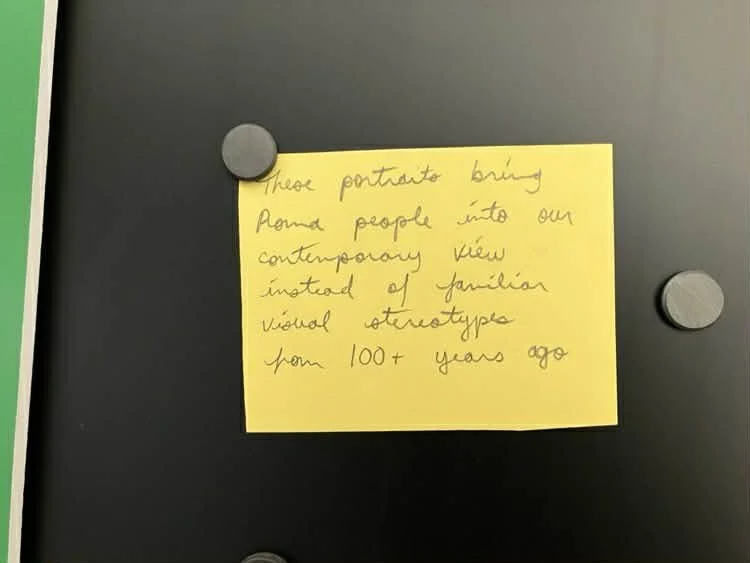 These portraits bring
Roma people into our
contemporary view
instead of familiar
visual stereotypes
from 100+ years ago